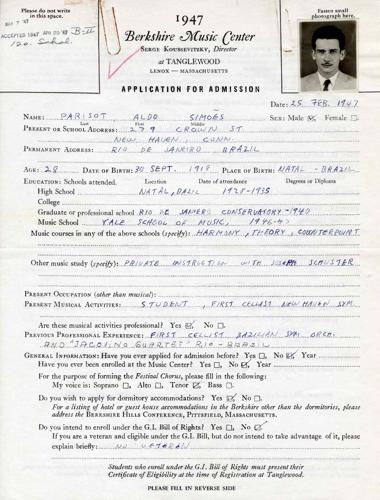 Please do not write
in this space.
1947
Fasten small
photograph here.
ACCEPTED 1947
B-II
Berkshire Music Center
SERGE KOUSSEVITZKY, Director
at TANGLEWOOD
LENOX — MASSACHUSETTS
APPLICATION FOR ADMISSION
Date: 25 FEB. 1947
NAME: PARISOT, ALDO SIMOES SEX: Male ☑ Female ☐
Last First Middle
PRESENT OR SCHOOL ADDRESS: 279 CROWN ST.
NEW HAVEN, CONN.
PERMANENT ADDRESS: RIO DE JANEIRO BRAZIL
AGE: 28 DATE OF BIRTH: 30 SEPT. 1918 PLACE OF BIRTH: NATAL - BRAZIL
EDUCATION: Schools attended. Location Date of attendance Degrees or Diploma
High School NATAL, 1928-1935
College
Graduate or professional school RIO DE JANEIRO CONSERVATORY - 1940
Music School YALE SCHOOL OF MUSIC, 1946-47
Music courses in any of the above schools (specify): HARMONY, THEORY, COUNTERPOINT
Other music study (specify): PRIVATE INSTRUCTION WITH JOSEPH SCHUSTER
PRESENT OCCUPATION (other than musical):
PRESENT MUSICAL ACTIVITIES: STUDENT, FIRST CELLIST NEW HAVEN SYM.
Are these musical activities professional? Yes ☑ No ☐.
PREVIOUS PROFESSIONAL EXPERIENCE: FIRST CELLIST BAZILIAN SYM. ORCH.
AND "JACOVINO QUARTET" RIO - BRAZIL
GENERAL INFORMATION: Have you ever applied for admission before? Yes ☐, No ☑, Year
Have you ever been enrolled at the Music Center? Yes ☐, No ☑, Year
For the purpose of forming the Festival Chorus, please fill in the following:
My voice is: Soprano ☐, Alto ☐, Tenor ☑, Bass ☐.
Do you wish to apply for dormitory accommodations? Yes ☑, No ☐.
For a listing of hotel or guest house accommodations in the Berkshire other than the dormitories, please
address the BERKSHIRE HILLS CONFERENCE, PITTSFIELD, MASSACHUSETTS.
Do you intend to enroll under the G.I. Bill of Rights? Yes ☐, No ☑
If you are a veteran and eligible under the G.I. Bill, but do not intend to take advantage of it, please
explain briefly: NO VETERAN
Students who enroll under the G.I. Bill of Rights must present their
Certificate of Eligibility at the time of Registration at Tanglewood.
PLEASE FILL IN REVERSE SIDE